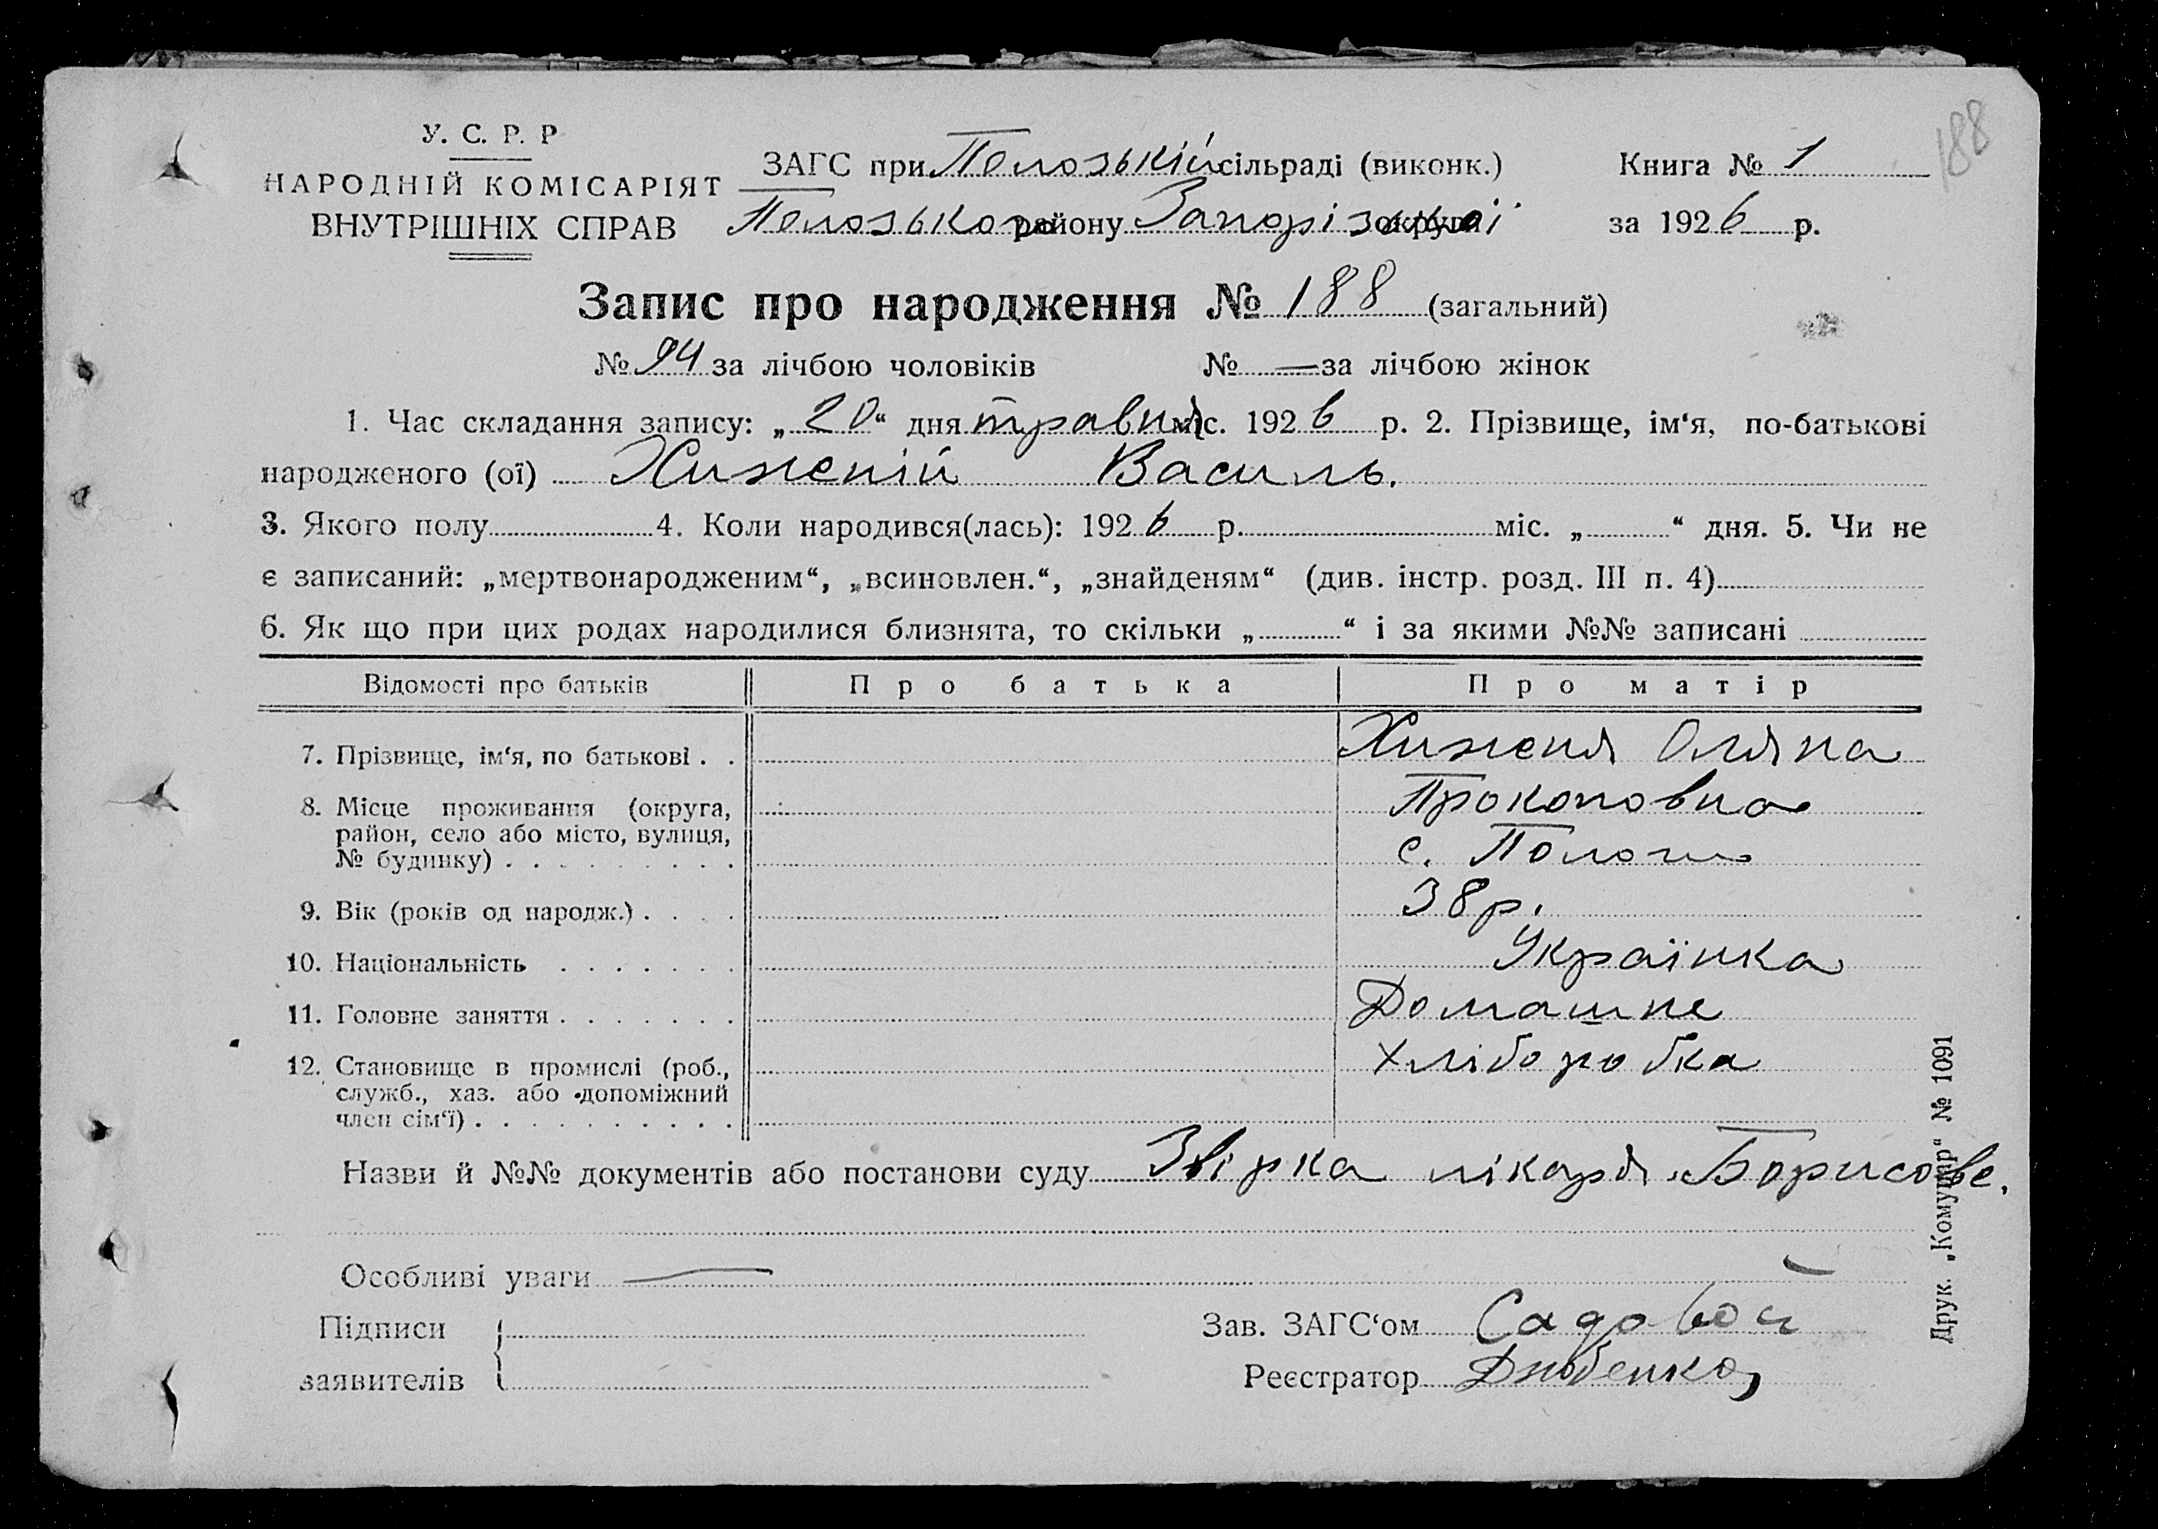 188
У. С. Р. Р
НАРОДНІЙ КОМІСАРІЯТ
ВНУТРІШНІХ СПРАВ
ЗАГС при Полозькій сільраді (виконк.)
Книга № 1
Полозького району Запорізької округи
за 1926 р.
Запис про народження № 188 (загальний)
№ 94 за лічбою чоловіків № — за лічбою жінок
1. Час складання запису: „20“ дня травня міс. 1926 р. 2. Прізвище, ім‘я, по-батькові
народженого (ої) Хижній Василь.
3. Якого полу 4. Коли народився(лась): 1926 р. міс. „ “ дня. 5. Чи не
є записаний: „мертвонародженим“, „всиновлен.“, „знайденям“ (див. інстр. розд. III п. 4)
6. Як що при цих родах народилися близнята, то скільки „ “ і за якими №№ записані
Відомості про батьків Про батька Про матір
7. Прізвище, ім‘я, по батькові . . Хижня Оляна
Прокоповна
8. Місце проживання (округа,
район, село або місто, вулиця,
№ будинку) . . . . . . . . . с. Пологи
9. Вік (років од народж.) . . . . 38 р.
10. Національність . . . . . . . Українка
11. Головне заняття . . . . . . . Домашне
12. Становище в промислі (роб., хліборобка
служб., хаз. або допоміжний
член сім‘ї) . . . . . . . . . .
Назви й №№ документів або постанови суду лікаря Борисове.
Особливі уваги —
Підписи
заявителів
Зав. ЗАГС‘ом Садовой
Реєстратор Дзюбенко
Друк. „Комунар“ № 1091